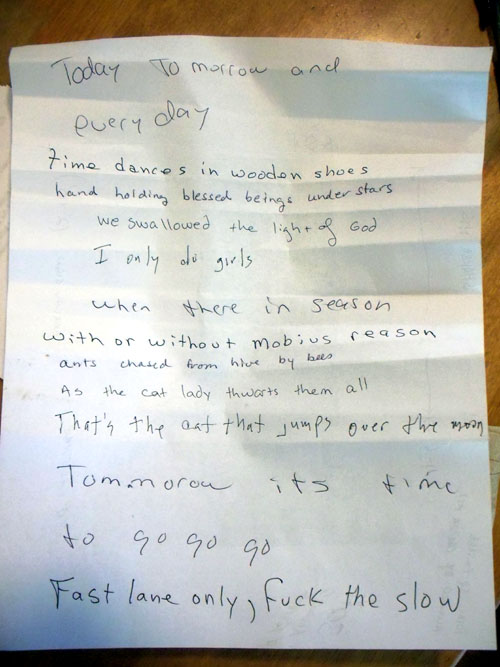 Today To morrow and
every day
time dances in wooden shoes
hand holding blessed beings under stars
we swallowed the light of God
I only do girls
when there in season
with or without mobius reason
ants chased from hive by bees
As the cat lady thwarts them all
That's the cat that jumps over the moon
Tommorow its time
to go go go
Fast lane only, Fuck the slow